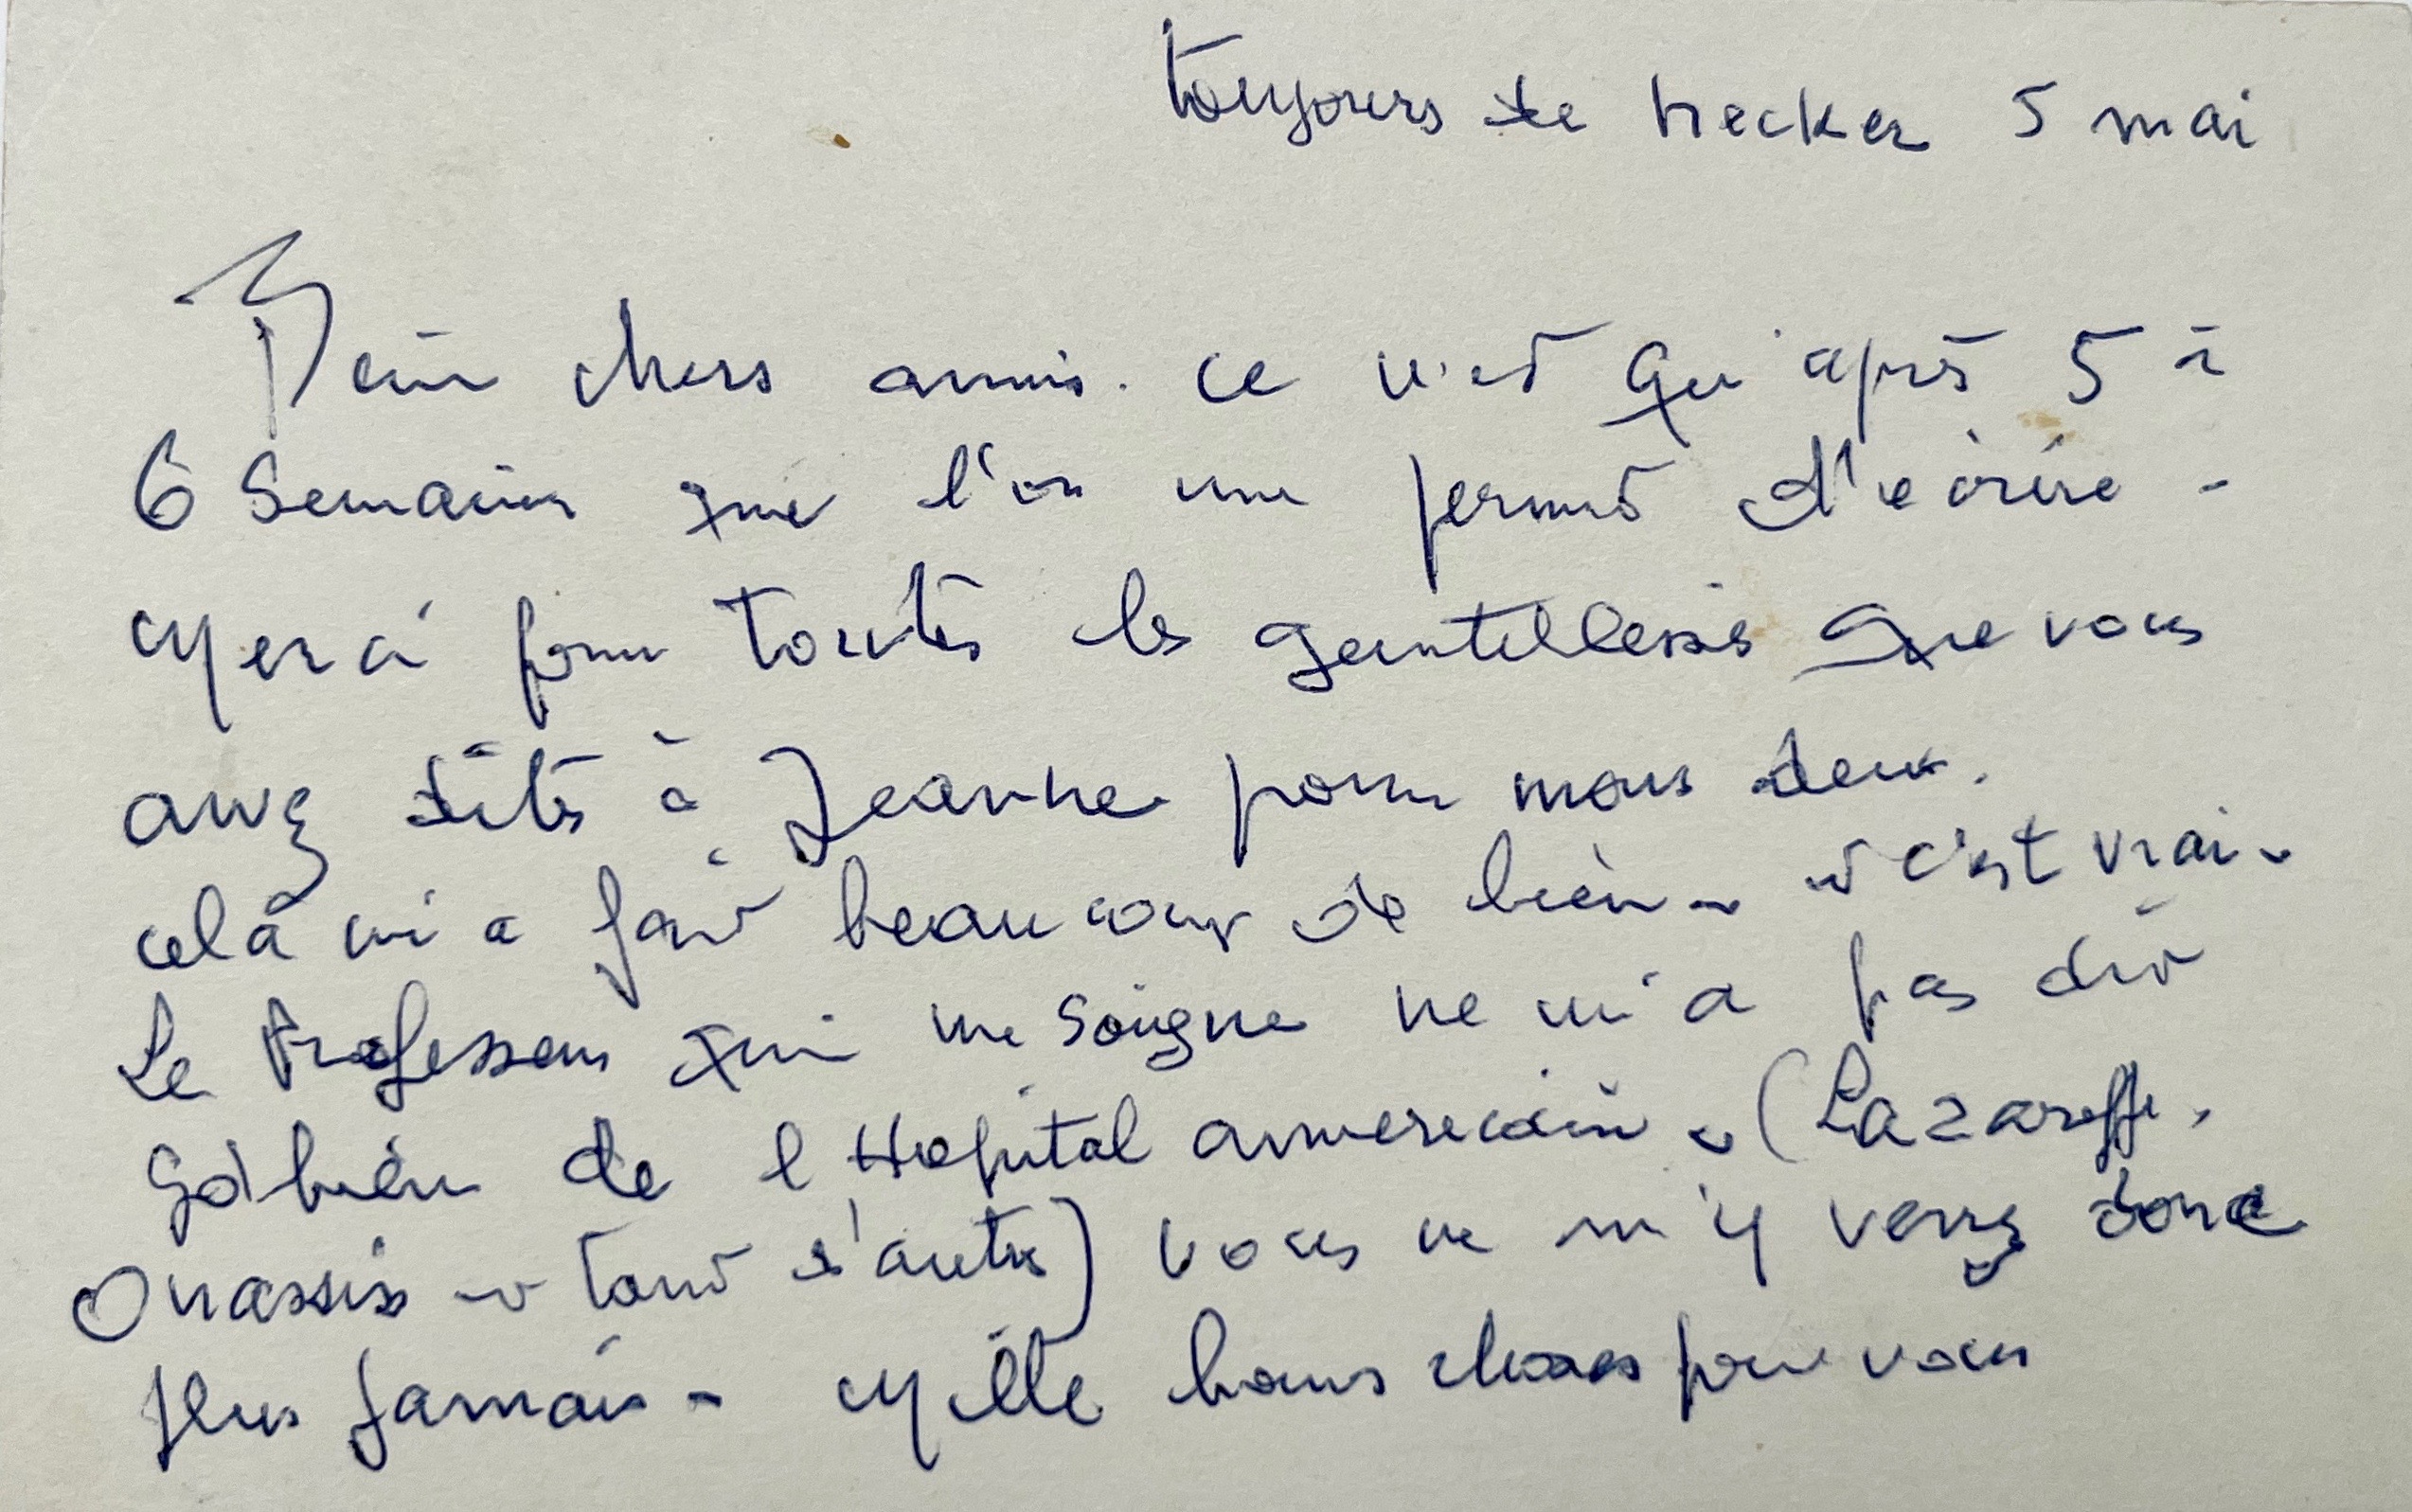 toujours de Necker 5 mai
Bien chers amis. ce n'est qu'après 5 à
6 Semaines que l'on me permet d'écrire -
Merci pour toutes les gentillesses que vous
avez dites à Jeanne pour nous deux.
celà m'a fait beaucoup de bien - et c'est vrai -
Le Professeur qui me soigne ne m'a pas dit
de l'Hopital americain - (Lazareff,
Onassis et tant d'autres) vous ne m'y verrez donc
plus jamais - Mille bonnes choses pour vous